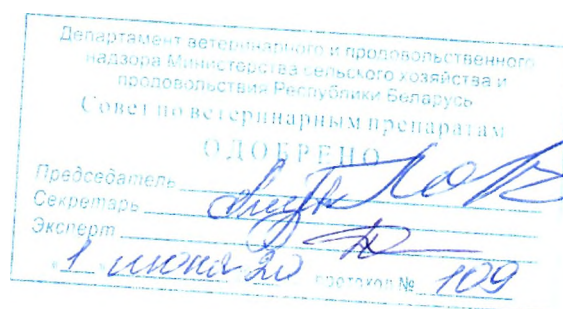 Департамент ветеринарного и продовольственного
надзора Министерства сельского хозяйства и
продовольствия Республики Беларусь
Совет по ветеринарным препаратам
ОДОБРЕНО
Председатель
Секретарь
Эксперт
1 июня 20 протокол № 109